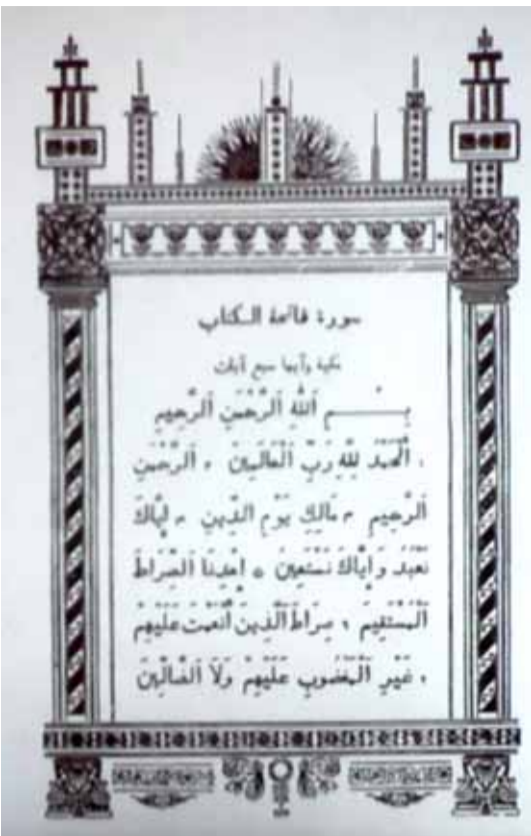 سورة فاتحة الكتاب
مكية وآيها سبع آيات
بِسْمِ اَللّٰهِ اَلرَّحْمٰنِ اَلرَّحِيمِ
اَلْحَمْدُ لِلّٰهِ رَبِّ اَلْعَالَمِينَ ، اَلرَّحْمٰنِ
اَلرَّحِيمِ ، مَالِكِ يَوْمِ اَلدِّينِ ، إِيَّاكَ
نَعْبُدُ وَإِيَّاكَ نَسْتَعِينُ ، اِهْدِنَا اَلصِّرَاطَ
اَلْمُسْتَقِيمَ ، صِرَاطَ اَلَّذِينَ أَنْعَمْتَ عَلَيْهِمْ
، غَيْرِ اَلْمَغْضُوبِ عَلَيْهِمْ وَلَا اَلضَّالِّينَ